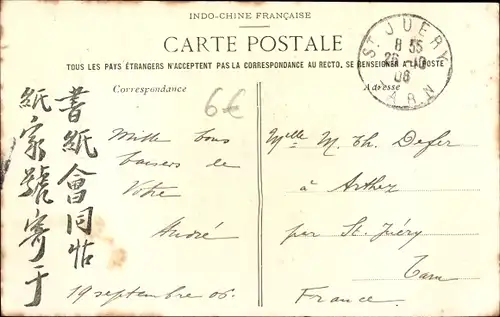 INDO-CHINE FRANÇAISE
CARTE POSTALE
TOUS LES PAYS ÉTRANGERS N'ACCEPTENT PAS LA CORRESPONDANCE AU RECTO, SE RENSEIGNER A LA POSTE
Correspondance
Adresse
6€
ST JUERY
8 35
26 10
06
TARN
書紙會同帖
紙家號寄于
Mille bons
baisers de
Votre
André
19 septembre 06.
Melle M. Th. Defer
à Arthez
par St. Juéry
Tarn
France